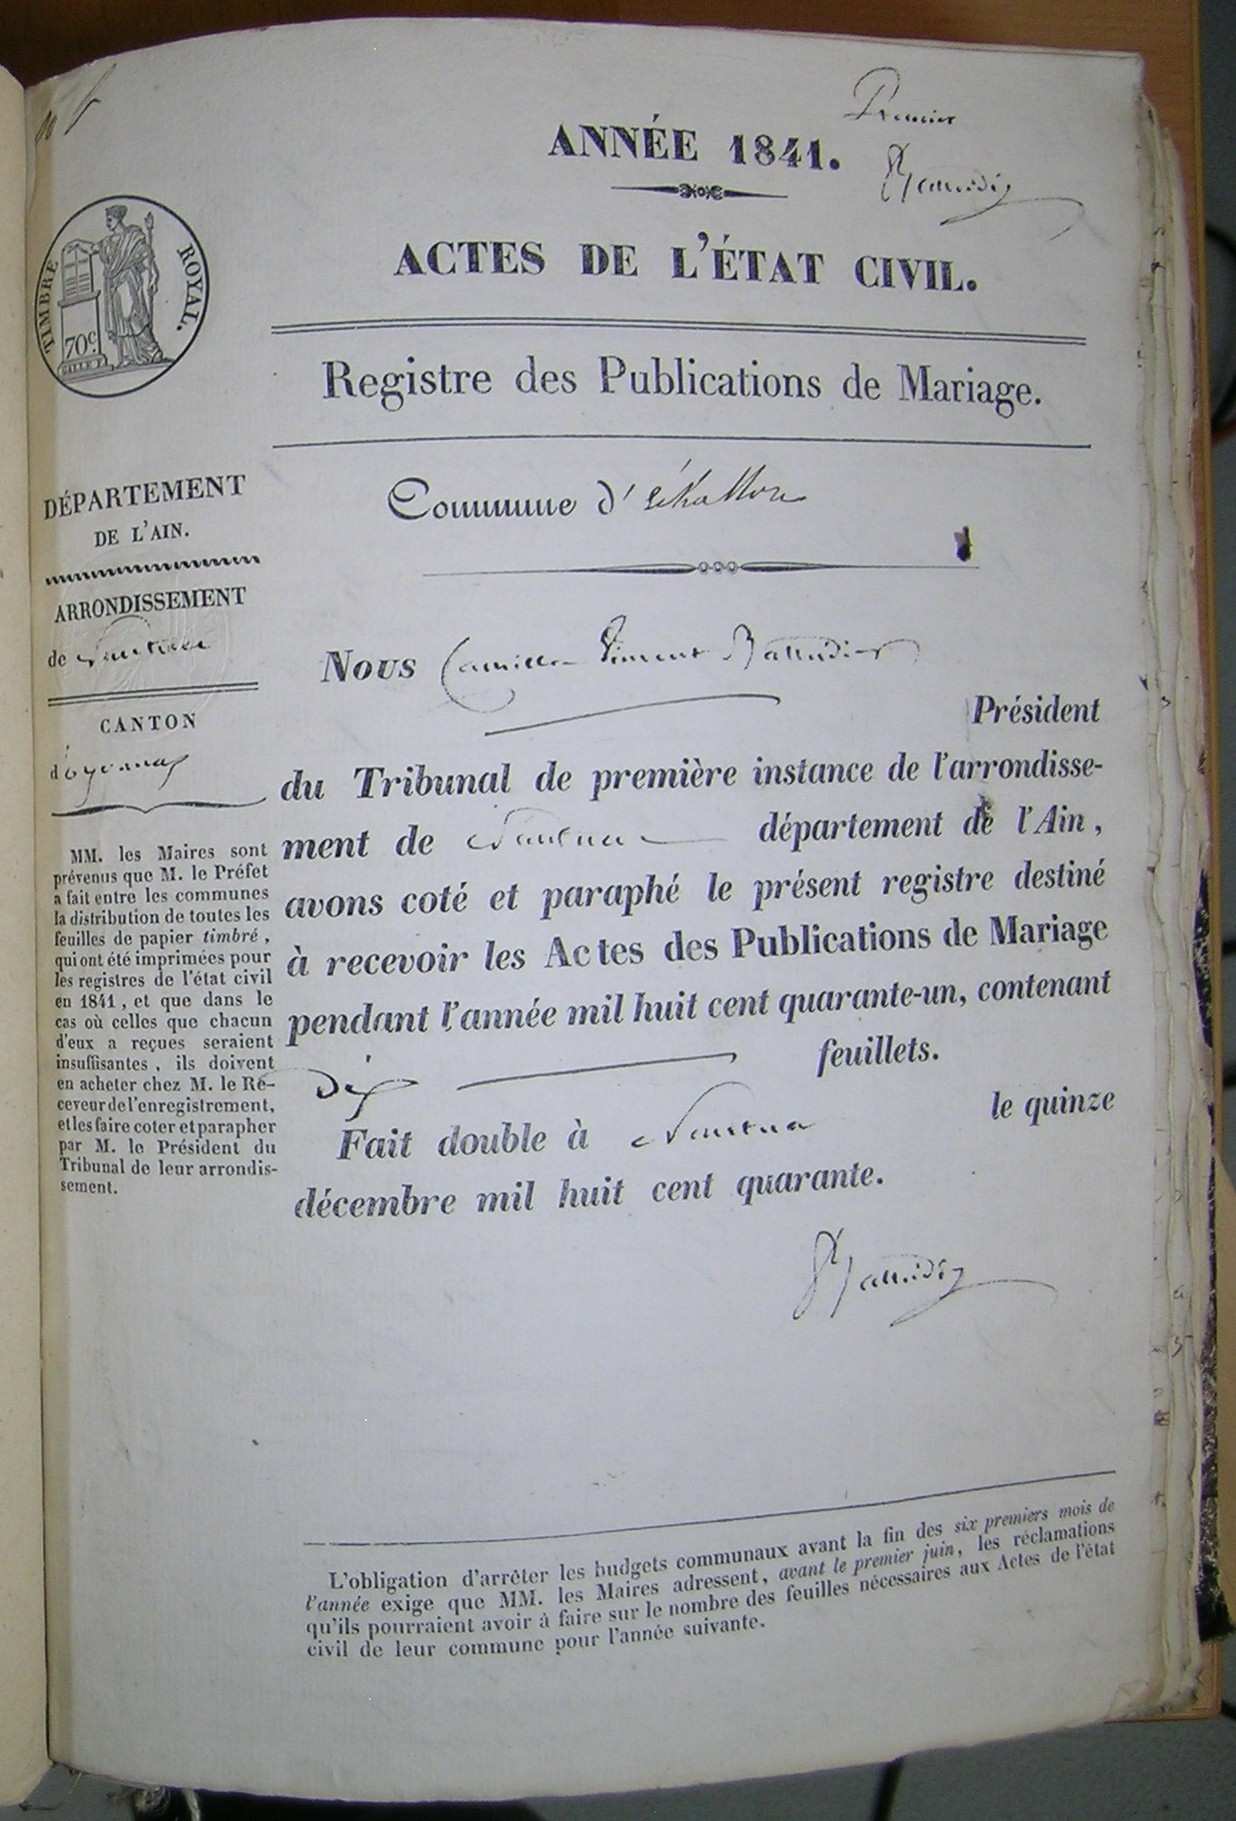 Premier
ANNÉE 1841.
ACTES DE L'ÉTAT CIVIL.
TIMBRE ROYAL.
70 c
Registre des Publications de Mariage.
Commune d'échallon
DÉPARTEMENT
DE L'AIN.
ARRONDISSEMENT
de Nantua
CANTON
d'oyonnax
MM. les Maires sont
prévenus que M. le Préfet
a fait entre les communes
la distribution de toutes les
feuilles de papier timbré,
qui ont été imprimées pour
les registres de l'état civil
en 1841, et que dans le
cas où celles que chacun
d'eux a reçues seraient
insuffisantes, ils doivent
en acheter chez M. le Re-
ceveur de l'enregistrement,
et les faire coter et parapher
par M. le Président du
Tribunal de leur arrondis-
sement.
Nous Camille Vincent
Président
du Tribunal de première instance de l'arrondisse-
ment de Nantua département de l'Ain,
avons coté et paraphé le présent registre destiné
à recevoir les Actes des Publications de Mariage
pendant l'année mil huit cent quarante-un, contenant
Dix feuillets.
Fait double à Nantua le quinze
décembre mil huit cent quarante.
L'obligation d'arrêter les budgets communaux avant la fin des six premiers mois de
l'année exige que MM. les Maires adressent, avant le premier juin, les réclamations
qu'ils pourraient avoir à faire sur le nombre des feuilles nécessaires aux Actes de l'état
civil de leur commune pour l'année suivante.